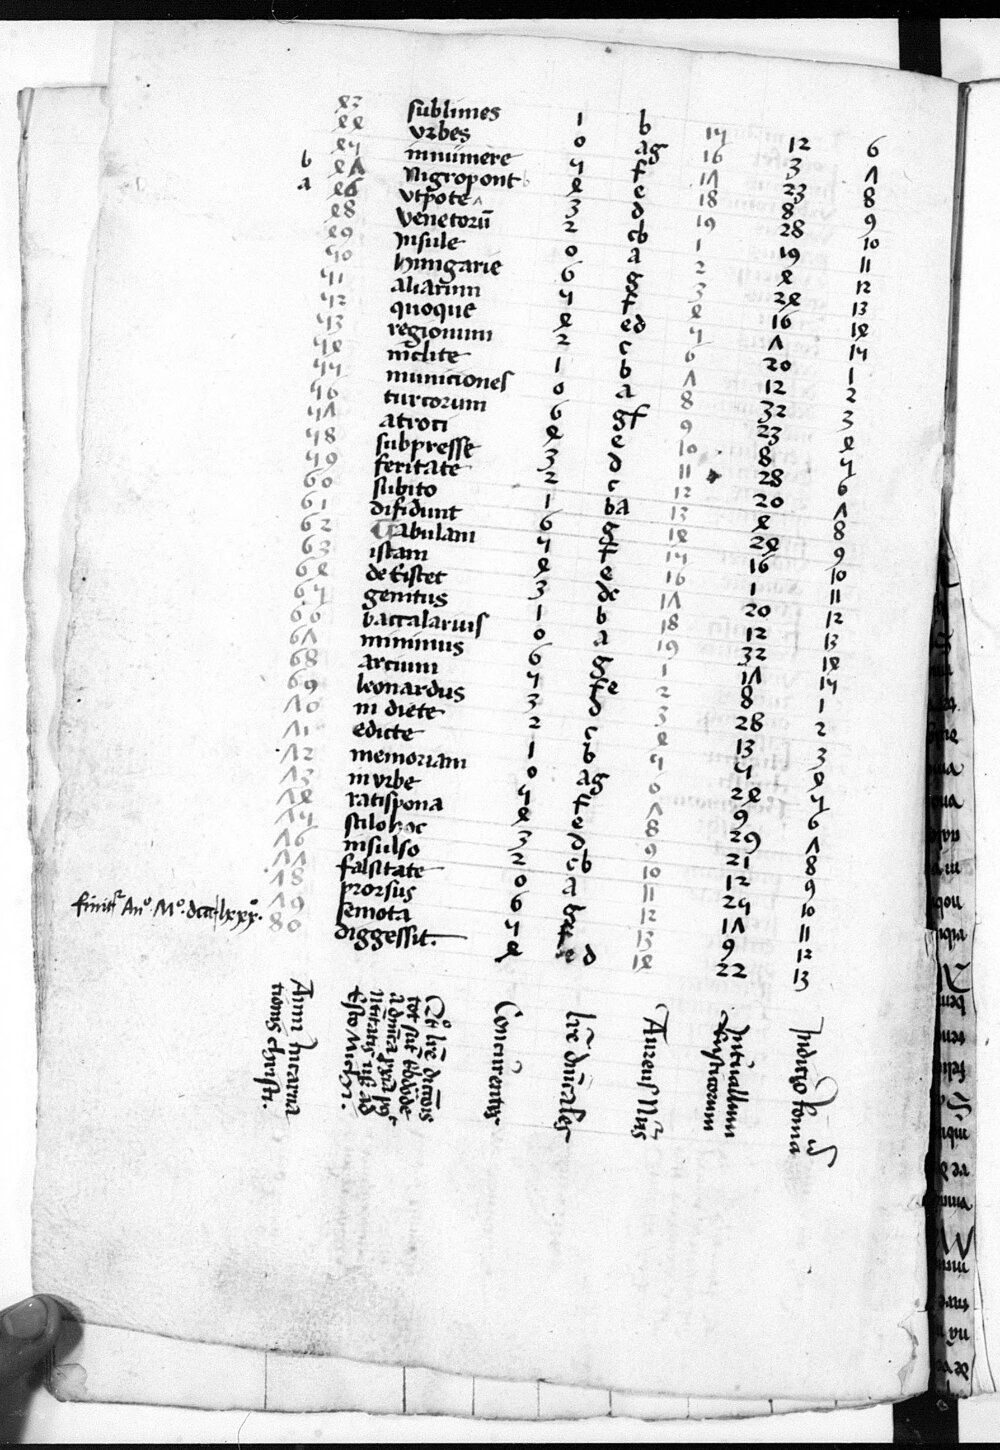 43 sublimes 1 b 15 12 6
44 vrbes 0 ag 16 3 7
45 innumere 5 f 17 23 8
b 47 Nigropont 4 e 18 8 9
a 46 vtpote 3 d 19 28 10
48 venetorū 2 cb 1 19 11
49 Insule 0 a 2 4 12
50 hungarie 6 g 3 24 13
51 aliarum 5 f 4 16 14
52 quoque 4 ed 5 7 15
53 regionum 2 c 6 20 1
54 inclite 1 b 7 12 2
55 municiones 0 a 8 32 3
56 turcorum 6 gf 9 23 4
57 atroci 4 e 10 8 5
58 subpresse 3 d 11 28 6
59 feritate 2 c 12 20 7
60 subito 1 ba 13 4 8
61 difidunt 6 g 14 24 9
62 Tabulam 5 f 15 16 10
63 istam 4 e 16 1 11
64 de Eistet 3 dc 17 20 12
65 genitus 1 b 18 12 13
66 baccalarius 0 a 19 32 14
67 minimus 6 g 1 17 15
68 arcium 5 fe 2 8 1
69 leonardus 3 d 3 28 2
70 in diete 2 c 4 13 3
71 edicte 1 b 5 5 4
72 memoriam 0 ag 6 24 5
73 in vrbe 5 f 7 9 6
74 ratispona 4 e 8 29 7
75 stilo hoc 3 d 9 21 8
76 insulso 2 cb 10 12 9
77 falsitate 0 a 11 25 10
78 prorsus 6 g 12 17 11
79 semota 5 f 13 9 12
80 diggessit. 4 e d 14 22 13
finitʳ Anº. Mº. dccclxxxº.
Anni Incarna
tionis christi.
Concurentes
lr̄e dn̄icales
Aureus Nūs
Intuallum
Indictio Roma